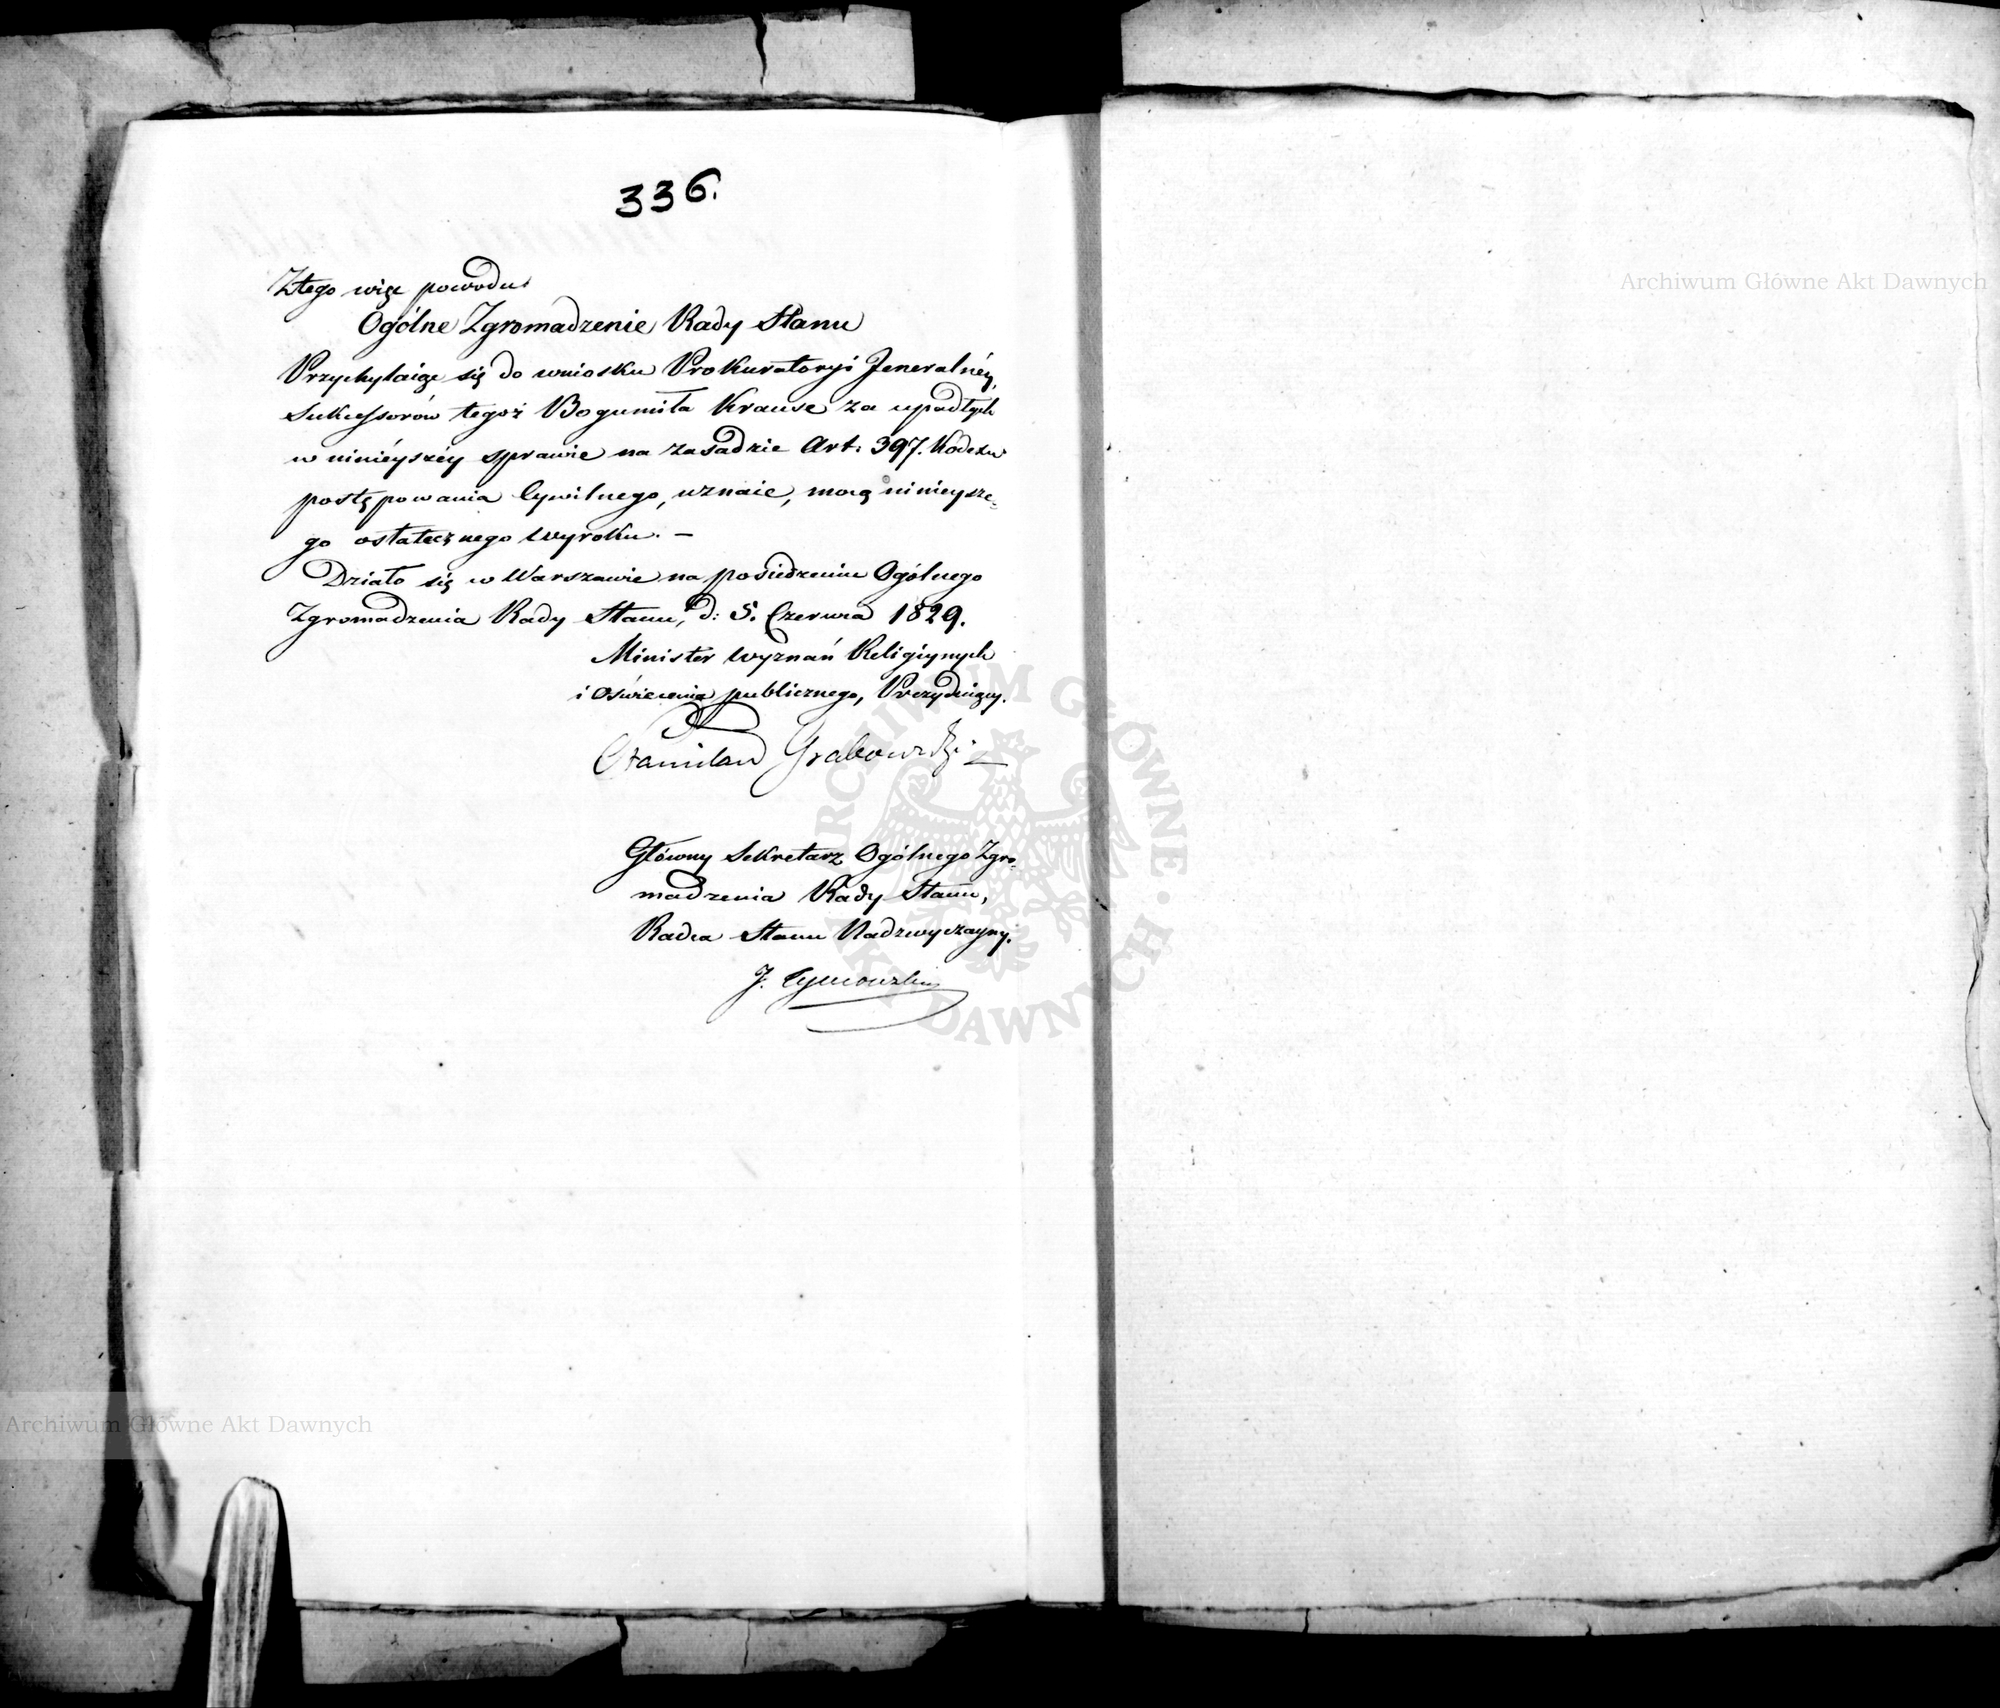 336.
Z tego więc powodu
Ogólne Zgromadzenie Rady Stanu
Przychylaiąc się do wniosku Prokuratoryi Jeneralnéy,
Sukcessorów tegoż Bogumiła Krause za upadłych
w ninieyszéy sprawie na zasadzie Art: 397. Kodexu
postępowania Cywilnego, uznaie, mocą ninieysze-
go ostatecznego wyroku. —
Działo się w Warszawie na posiedzeniu Ogólnego
Zgromadzenia Rady Stanu, d: 5. Czerwca 1829.
Minister Wyznań Religiynych
i Oświecenia publicznego, Prezyduiący.
Stanisław Grabowski
Główny Sekretarz Ogólnego Zgro-
madzenia Rady Stanu,
Radca Stanu Nadzwyczayny.
J.
Archiwum Główne Akt Dawnych
Archiwum Główne Akt Dawnych
ARCHIWUM GŁÓWNE AKT DAWNYCH